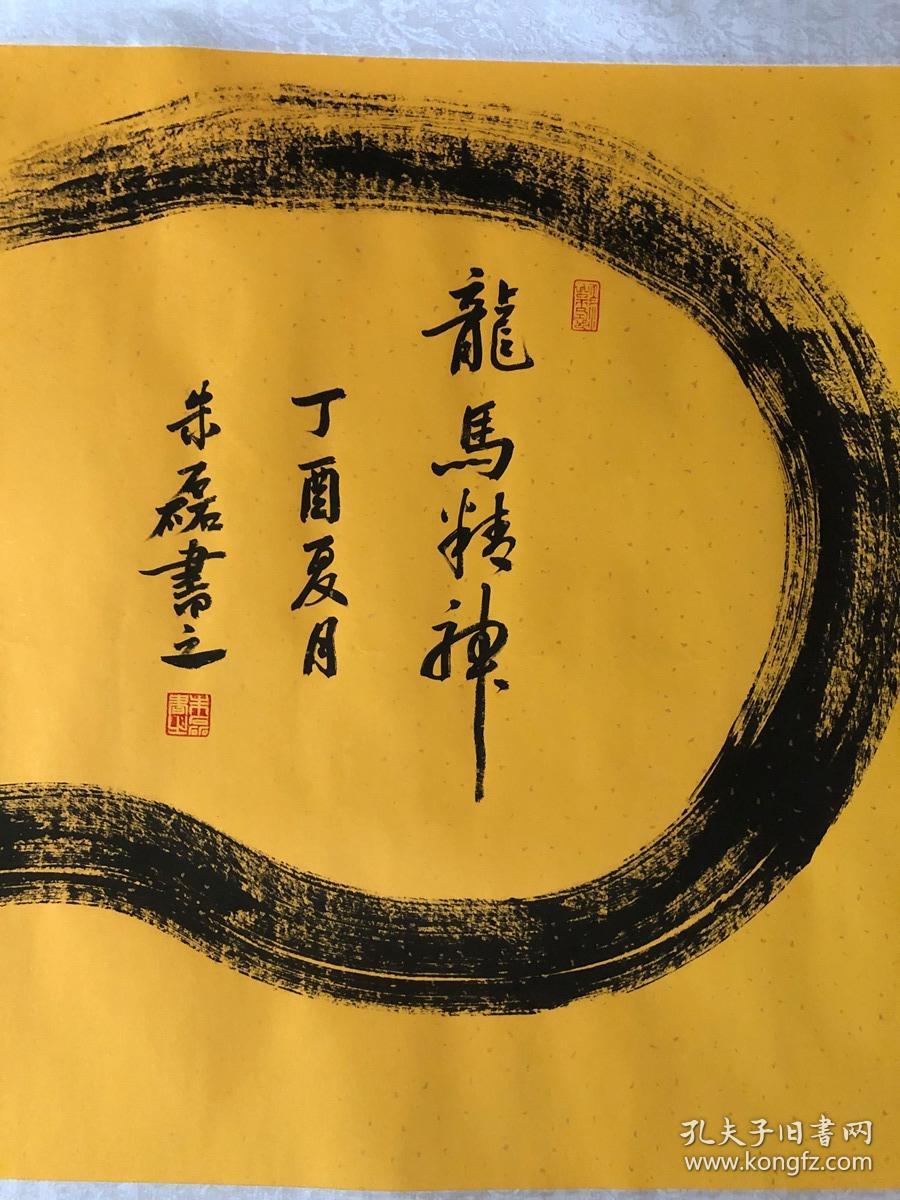 龍馬精神
丁酉夏月
朱磊書之
朱磊書之
孔夫子旧書网
www.kongfz.com